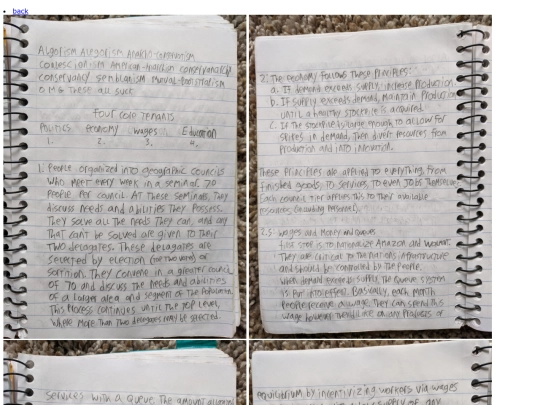 back
Algorism Algorism Anarko-conservatism
conservancy
OMG these all suck
Four core tenants
Politics Economy Wages Education
1. 2. 3. 4.
1. People organized into geographic councils
who meet every week in a seminar. 70
People per council. At these seminars, they
discuss needs and abilities they possess.
They solve all the needs they can, and any
that cant be solved are given to their
two delagates. These delagates are
selected by election (one two vote) or
sortition. They convene in a greater council
of 70 and discuss the needs and abilities
of a larger area and segment of the population.
This process continues until the top level,
where more than two delegates may be selected.
2. The economy follows these principles:
a. If demand exceeds supply, increase production
b. If supply exceeds demand, maintain production
until a healthy stockpile is acquired.
c. If the stockpile is large enough to allow for
spikes in demand, then divert resources from
production and into innovation.
These principles are applied to everything, from
finished goods, to services, to even jobs themselves.
Each council tier applies this to they available
resources (including personel).
2.5 Wages and Money and queues
First step is to nationalize Amazon and Walmart.
They are critical to the nations infrastructure
and should be controlled by the people.
When demand exceeds supply, the queue system
is put into effect. Basically, each month
people receive a wage. They can spend this
wage however they'd like on any products or
services with a queue. The amount
equilibrium by incentivizing workers via wages
supply of any